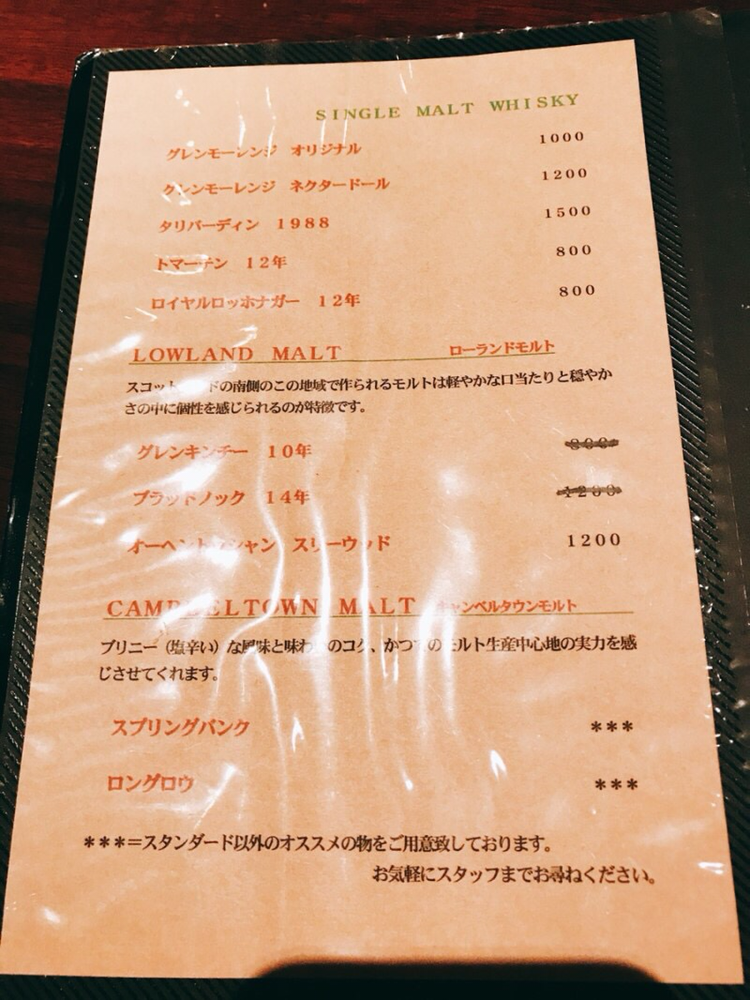 SINGLE MALT WHISKY
グレンモーレンジ オリジナル 1000
グレンモーレンジ ネクタードール 1200
タリバーディン 1988 1500
トマーチン 12年 800
ロイヤルロッホナガー 12年 800
LOWLAND MALT ローランドモルト
スコットランドの南側のこの地域で作られるモルトは軽やかな口当たりと穏やか
さの中に個性を感じられるのが特徴です。
グレンキンチー 10年 800
ブラッドノック 14年 1200
オーヘントッシャン スリーウッド 1200
CAMPBELTOWN MALT キャンベルタウンモルト
ブリニー（塩辛い）な風味と味わいのコク、かつてのモルト生産中心地の実力を感
じさせてくれます。
スプリングバンク ***
ロングロウ ***
***＝スタンダード以外のオススメの物をご用意致しております。
お気軽にスタッフまでお尋ねください。